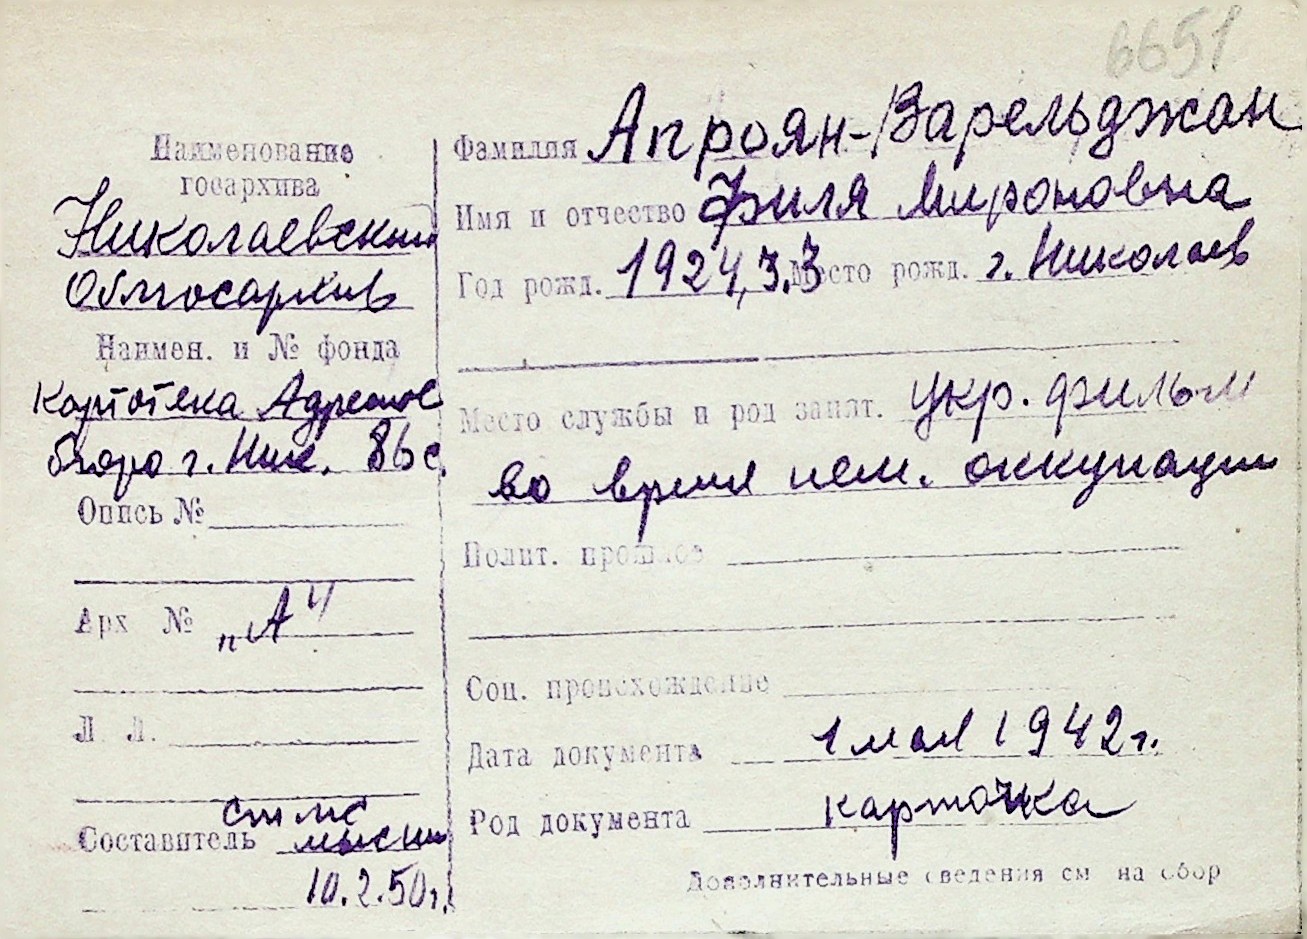 6651
Наименование
госархива
Николаевский
Облгосархив
Наимен. и № фонда
Картотека Адресное
бюро г. Ник. 86 с.
Опись №
Арх № „А“
Л. Л.
Составитель
10.2.50г.
Фамилия Апроян-Варельджан
Имя и отчество Филя Мироновна
Год рожд. 1924, 3.3 Место рожд. г. Николаев
Место службы и род занят. укр. фильм
во время нем. оккупации
Полит. прошлое
Соц. происхождение
Дата документа 1 мая 1942г.
Род документа карточка
Дополнительные сведения см на обор